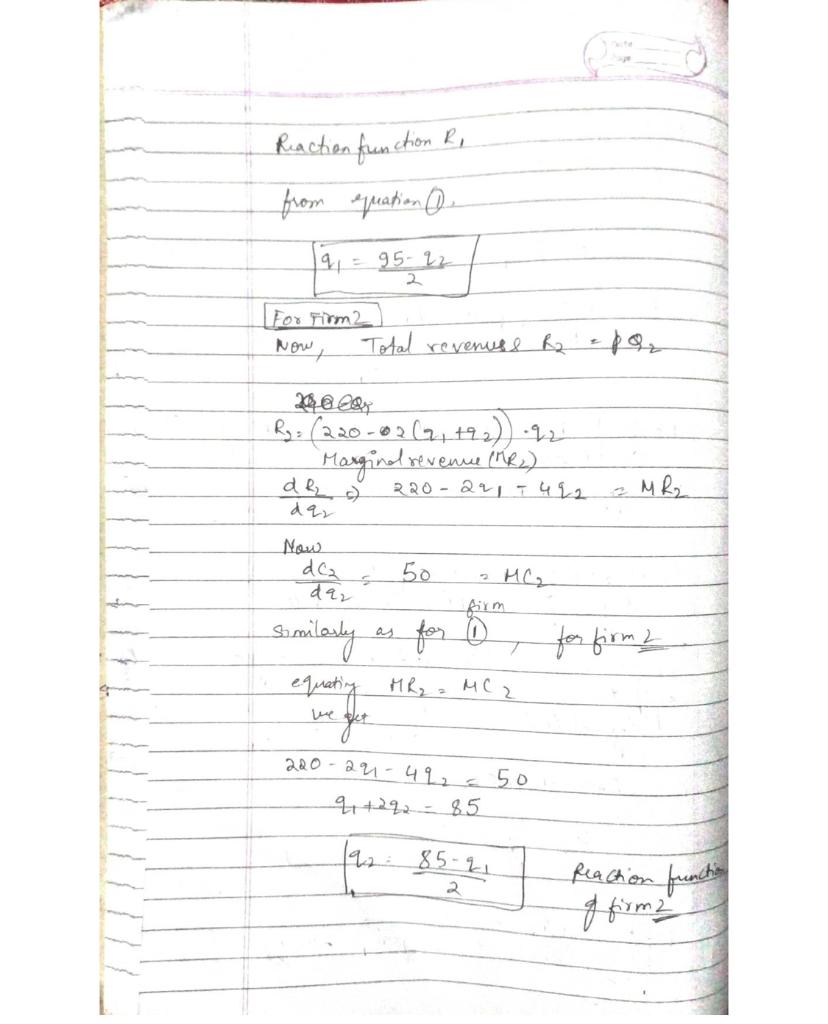 Date
Page
Reaction function R₁
from equation ①.
q₁ = 95 - q₂ / 2
For Firm 2
Now, Total revenues R₂ = p Q₂
R₂ = (220 - 2 (q₁ + q₂)) · q₂
Marginal revenue (MR₂)
dR₂ / dq₂ ⇒ 220 - 2q₁ - 4q₂ = MR₂
Now
dC₂ / dq₂ = 50 = MC₂
similarly as for firm ①, for firm 2
equating MR₂ = MC₂
we get
220 - 2q₁ - 4q₂ = 50
q₁ + 2q₂ = 85
q₂ = 85 - q₁ / 2 Reaction function
of firm 2